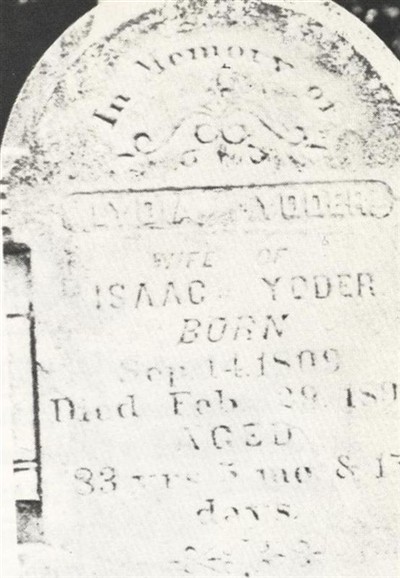 In Memory of
LYDIA YODER
WIFE OF
ISAAC YODER
BORN
Sep 14, 1809
Died Feb 189
AGED
83 yrs 5 mo &
days.